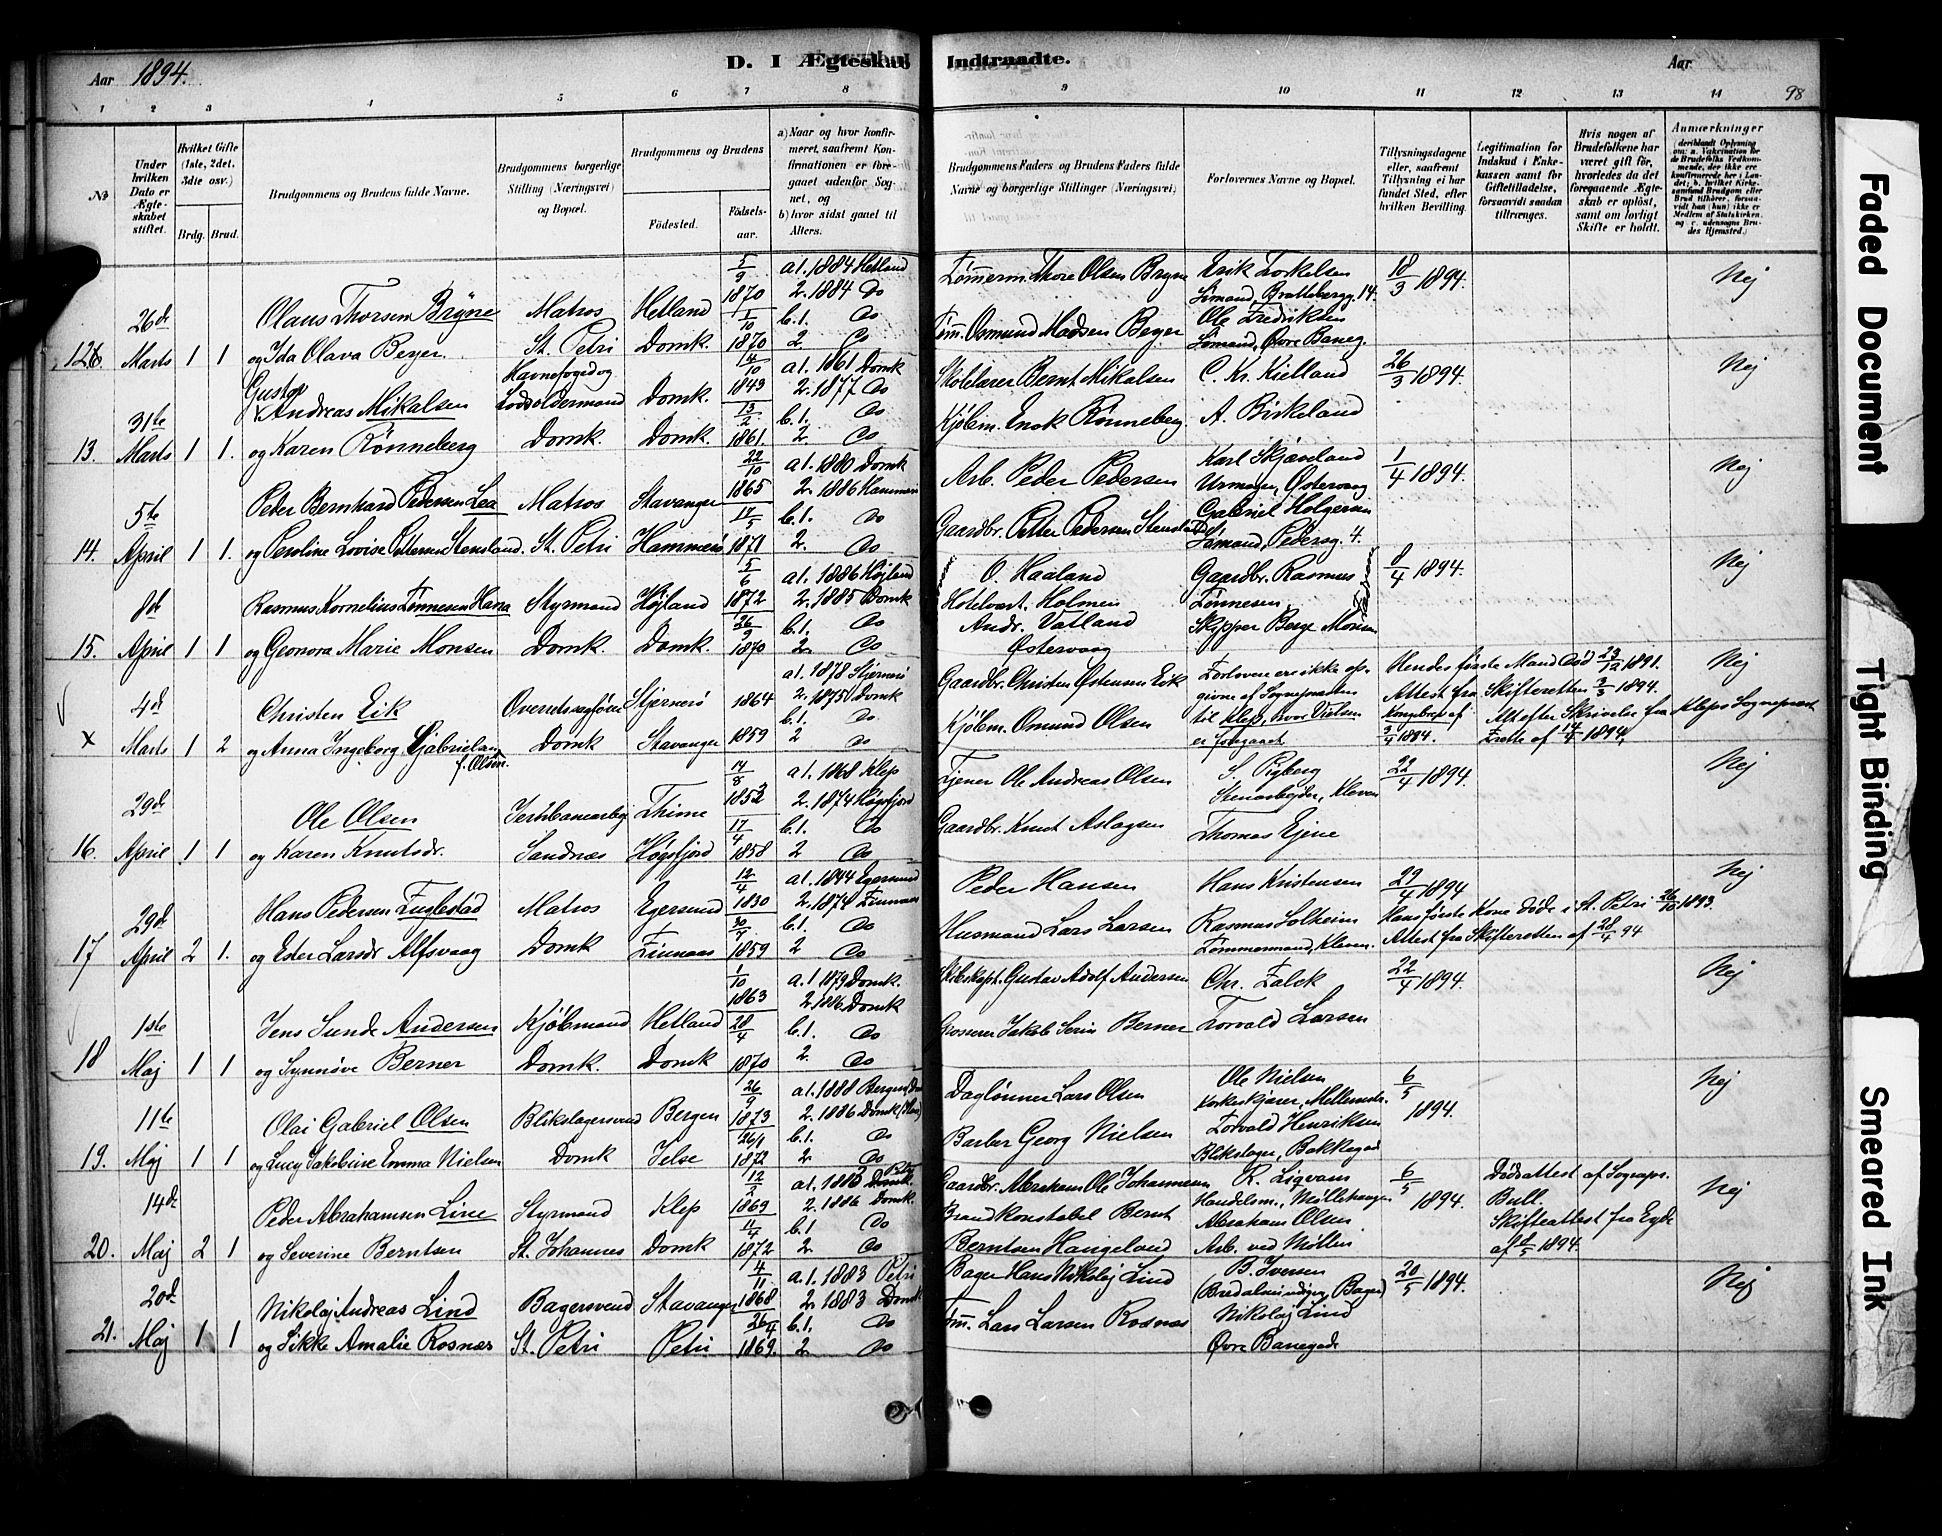 Aar 1894.
D. I Ægteskab Indtraadte.
Aar
98
1 2 3 4 5 6 7 8 9 10 11 12 13 14
No
Under hvilken Dato er Ægteskabet stiftet.
Hvilket Gifte (1ste, 2det, 3die osv.)
Brdg. Brud.
Brudgommens og Brudens fulde Navne.
Brudgommens borgerlige Stilling (Næringsvei) og Bopæl.
Brudgommens og Brudens
Födested.
Födselsaar.
a) Naar og hvor konfirmeret, saafremt Konfirmationen er foregaaet udenfor Sognet, og
b) hvor sidst gaaet til Alters.
Brudgommens Faders og Brudens Faders fulde Navne og borgerlige Stillinger (Næringsvei).
Forlovernes Navne og Bopæl.
Tillysningsdagene eller, saafremt Tillysning ei har fundet Sted, efter hvilken Bevilling.
Legitimation for Indskud i Enkekassen samt for Giftetilladelse, forsaavidt saadan tiltrænges.
Hvis nogen af Brudefolkene har været gift før, hvorledes da det foregaaende Ægteskab er oplöst, samt om lovligt Skifte er holdt.
Anmærkninger
12. 26de Marts 1 1
Olaus Thorsen Bryne Matros Hetland 5/9 1870 a1. 1884 Hetland
og Ida Olava Berger St. Petri Domk. 1/10 1870 2. 1884 Do
b.1. Do
2 Do
Tømmerm. Thore Olsen Bryne
Tøm. Osmund Madsen Berger
Erik Torkelsen
Sömand, Brattebergg. 14.
Ole Fredriksen
Sömand, Øvre Baneg.
18/3 1894. Nej
13. 31te Marts 1 1.
Gustav
Andreas Mikalsen Havnefoged og Lodsoldermand Domk. 4/10 1843 a1. 1861 Domk
og Karen Rønneberg Domk. Domk. 13/2 1861. 2. 1877 Do
b.1. Do
2. Do
Skolelærer Bernt Mikalsen
Kjöbm. Enok Rønneberg
C. Kr. Kielland
A. Birkeland
26/3 1894. Nej
14. 5te April 1 1.
Peder Bernhard Pedersen Lea Matros Stavanger 22/10 1865 a1. 1880 Domk
og Peroline Lovise Pettersen Stensland. St. Petri Hammerö 17/5 1871 2. 1886 Hammerö
b.1. Do
2. Do
Arb. Peder Pedersen
Gaardbr. Petter Pedersen Stensland
Karl Skjæveland
Urmager, Østervaag
Gabriel Holgersen
Sömand, Pedersg. 4.
1/4 1894. Nej
15. 8de April 1 1
Rasmus Kornelius Tønnesen Hana Styrmand Højland 5/6 1872 a1. 1886 Højland
og Geonora Marie Monsen Domk. Domk. 26/9 1870 2. 1885 Domk
b.1. Do
2. Do
O. Haaland
Hotelvært. Holmen
Andr. Vatland
Østervaag
Gaardbr. Rasmus
Tønnesen,
Skipper Berge Monsen
8/4 1894. Nej
x 4de Marts 1 2
Christen Eik Overretssagfører Stjernerö 1864 a1. 1878 Stjernerö
og Anna Ingeborg Gabrielsen f. Olsen. Domk Stavanger 1859 2. 1875 Domk
b.1. Do
2 Do
Gaardbr. Christen Østensen Eik
Kjöbm. Osmund Olsen
Forlovere ere ikke opgivne af Sognepræsten til Klep, hvor Vielsen er foregaaet
Hendes første Mand død 23/2 1891.
Attest fra Skifteretten 3/3 1894.
Kongebrev af 3/4 1894.
Alt efter Skrivelse fra Kleps Sognepræst
af 14/4 1894.
Nej
16. 29de April 1 1
Ole Olsen Jernbanearbej. Thime 14/8 1852 a1. 1868 Klep
og Karen Knutsdr. Sandnæs Høgsfjord 17/4 1858 2. 1874 Høgsfjord
b.1. Do
2 Do
Tjener Ole Andreas Olsen
Gaardbr. Knut Aslagsen
S. Pigberg
Stenarbejder, Kleven
Thomas Ejene
22/4 1894. Nej
17 29de April 2 1.
Hans Pedersen Fuglestad Matros Egersund 12/4 1830 a1. 1844 Egersund
og Ester Larsdr Alfsvaag Domk Finnaas 30/7 1859 2. 1874 Finnaas
b.1. Do
2 Do
Peder Hansen
Husmand Lars Larsen
Hans Kristensen
Rasmus Solheim
Tømmermand, Kleven.
29/4 1894
Hans første Kone døde i St. Petri 26/10 1893.
Attest fra Skifteretten af 28/4 94
Nej
18 1ste Maj 1 1
Jens Sunde Andersen Kjöbmand Hetland 1/10 1863 a.1 1879 Domk.
og Synnöve Berner Domk. Domk 28/4 1870 2. 1886 Domk
b.1. Do
2. Do
Skibskapt. Gustav Adolf Andersen
Grosserer Jakob Serin Berner
Chr. Falck
Torvald Larsen
22/4 1894. Nej
19. 11te Maj 1 1
Olai Gabriel Olsen Blikslagersvend Bergen 26/9 1873 a1. 1888 Bergens Dom
og Lucy Jakobine Emma Nielsen Domk Jelse 26/1 1872 2. 1886 Domk
b.1. Do
2. Do
Daglønner Lars Olsen
Barber Georg Nielsen
Ole Nielsen
Korkeskjærer, Mellemstr.
Torvald Henriksen
Blikslager, Bakkegad
6/5 1894. Nej
20. 14de Maj 2 1
Peder Abrahamsen Line Styrmand Klep 12/2 1869 a1. 1883 Petri
og Severine Berntsen St. Johannes Domk 11/4 1872 2. 1886 Domk
b.1 Do
2. Do
Gaardbr. Abraham Ole Johannesen
Brandkonstabel Bernt
Berntsen Haugelved
R. Ligvam
Handelsm., Møllehaugen
Abraham Olsen
Arb. ved Møllen
6/5 1894.
Dødsattest af Sognepr. Bull.
Skifteattest fra Egde
af 8/5 1894.
Nej
21. 20de Maj 1 1
Nikolaj Andreas Lind Bagersvend Stavanger 4/11 1868 a.1. 1883 Petri
og Sikke Amalie Rosnæs St. Petri Petri 26/4 1869. 2. 1883 Domk
b.1. Do
2 Do
Bager Hans Nikolaj Lind
Tøm. Lars Larsen Rosnæs
B. Iversen
Nikolaj Lind
Øvre Banegade
20/5 1894. Nej
Faded Document
Tight Binding
Smeared Ink